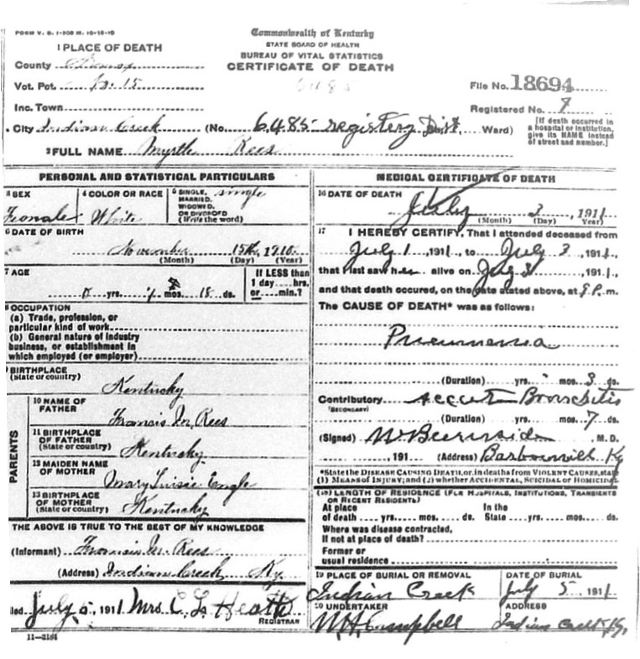 FORM V. S. 1-300 M. 10-15-10
Commonwealth of Kentucky
STATE BOARD OF HEALTH
BUREAU OF VITAL STATISTICS
CERTIFICATE OF DEATH
1 PLACE OF DEATH
County
Vot. Pot. No. 15
Inc. Town
City Indian Creek (No. 6485 registery Dist, Ward)
File No. 18694
Registered No. 8
[If death occurred in a hospital or institution, give its NAME instead of street and number.]
2 FULL NAME Myrtle Rees
PERSONAL AND STATISTICAL PARTICULARS
3 SEX Female
4 COLOR OR RACE White
5 SINGLE, MARRIED, WIDOWED, OR DIVORCED (Write the word) single
6 DATE OF BIRTH
November 15th, 1910
(Month) (Day) (Year)
7 AGE
0 yrs. 7 mos. 18 ds.
If LESS than 1 day.... hrs. or.... min.?
8 OCCUPATION
(a) Trade, profession, or particular kind of work
(b) General nature of industry business, or establishment in which employed (or employer)
9 BIRTHPLACE
(State or country) Kentucky
PARENTS
10 NAME OF FATHER Francis M. Rees
11 BIRTHPLACE OF FATHER (State or country) Kentucky
12 MAIDEN NAME OF MOTHER Mary Engle
13 BIRTHPLACE OF MOTHER (State or country) Kentucky
THE ABOVE IS TRUE TO THE BEST OF MY KNOWLEDGE
(Informant) Francis M. Rees
(Address) Indian Creek Ky
July 5, 1911 Mrs. C. L. Heath
REGISTRAR
11-3184
MEDICAL CERTIFICATE OF DEATH
16 DATE OF DEATH
July 3, 1911
(Month) (Day) (Year)
17 I HEREBY CERTIFY, That I attended deceased from
July 1 1911, to July 3 1911,
that I last saw her alive on July 2 1911,
and that death occured, on the date stated above, at 8 P. m.
The CAUSE OF DEATH* was as follows:
Pneumonia
(Duration) yrs. mos. 3 ds.
Contributory Accute Bronchitis
(SECONDARY)
(Duration) yrs. mos. 7 ds.
(Signed) M. D.
, 191 (Address) Barbourvill Ky
*State the DISEASE CAUSING DEATH, or, in deaths from VIOLENT CAUSES, state (1) MEANS OF INJURY; and (2) whether ACCIDENTAL, SUICIDAL or HOMICIDAL
LENGTH OF RESIDENCE (FOR HOSPITALS, INSTITUTIONS, TRANSIENTS OR RECENT RESIDENTS)
At place of death .... yrs. .... mos. .... ds. In the State .... yrs. .... mos. .... ds.
Where was disease contracted, if not at place of death?
Former or usual residence
19 PLACE OF BURIAL OR REMOVAL Indian Creek
DATE OF BURIAL July 5 1911
20 UNDERTAKER Campbell
ADDRESS Indian Creek Ky.